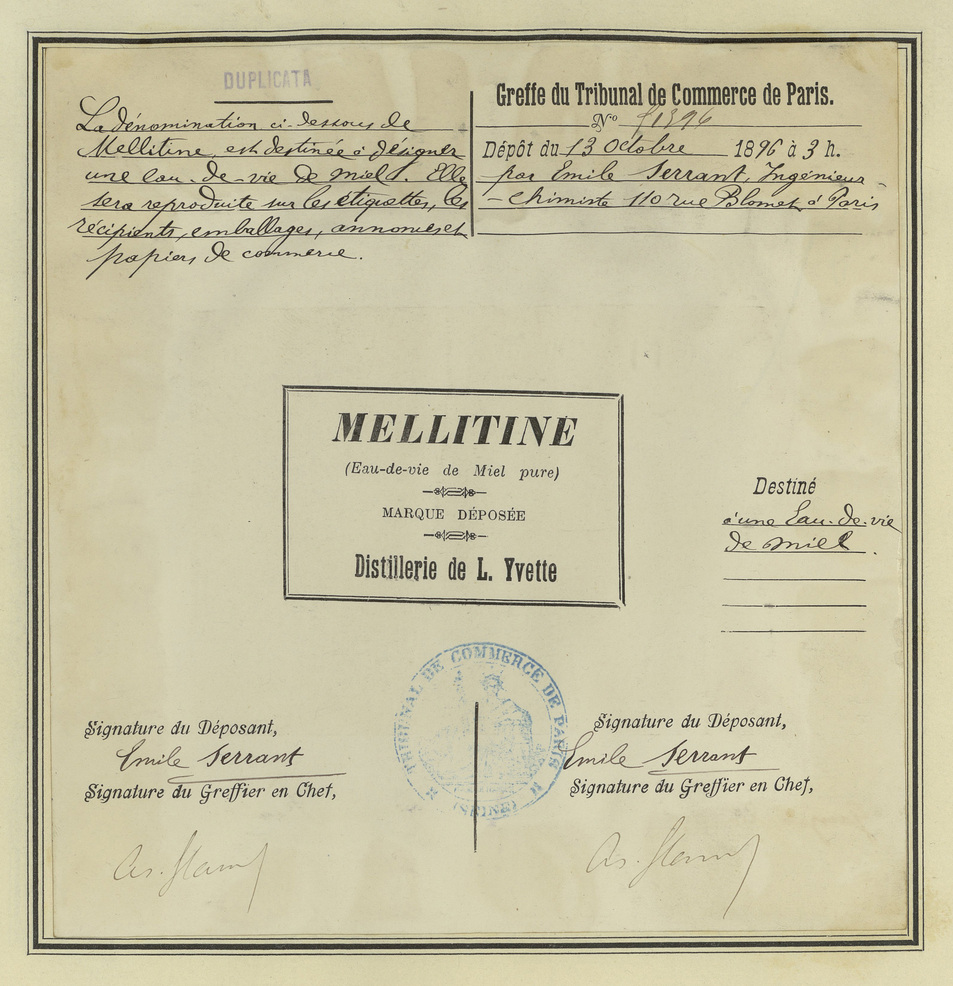 DUPLICATA
La dénomination ci-dessous de
Mellitine, est destinée à désigner
une eau-de-vie de miel. Elle
sera reproduite sur les étiquettes, les
récipients, emballages, annonces et
papiers de commerce.
Greffe du Tribunal de Commerce de Paris.
N°
Dépôt du 13 Octobre 1896 à 3 h.
par Emile Serrant, Ingénieur
-chimiste 110 rue Blomet à Paris
MELLITINE
(Eau-de-vie de Miel pure)
MARQUE DÉPOSÉE
Distillerie de L. Yvette
Destiné
à une Eau-de-vie
de miel.
TRIBUNAL DE COMMERCE DE PARIS
(SEINE)
Signature du Déposant,
Emile Serrant
Signature du Greffier en Chef,
Signature du Déposant,
Emile Serrant
Signature du Greffier en Chef,